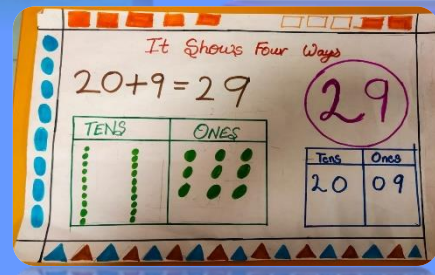 It Shows Four Ways
20+9=29
29
TENS ONES
Tens Ones
20 09